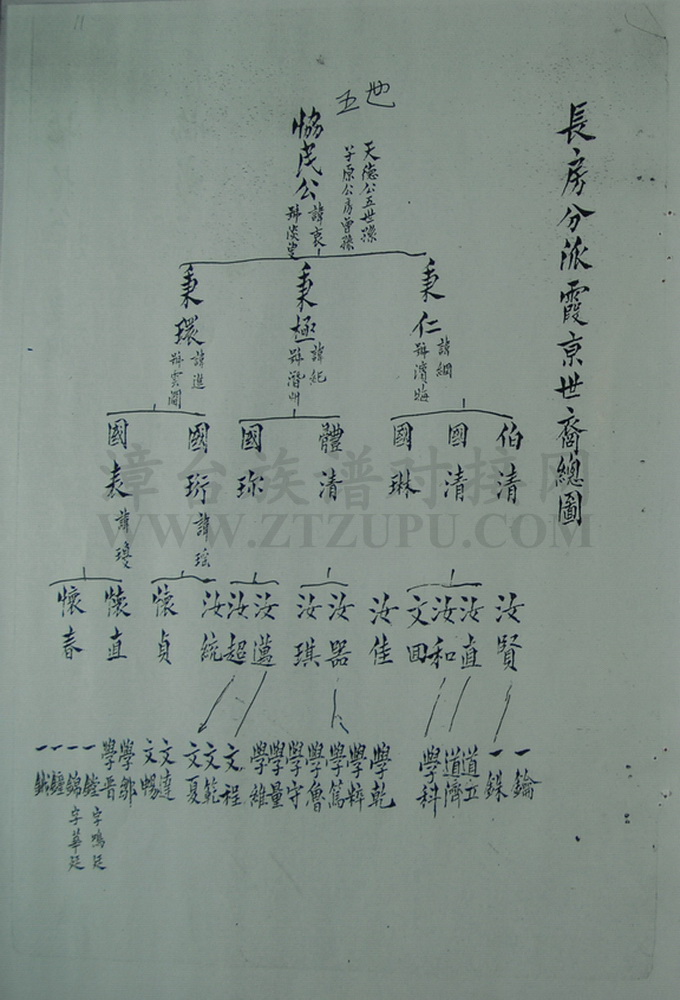 長房分派霞京世裔總圖
五世
天德公五世孫
子原公房曾孫
協民公
諱哀
秉仁
諱綱
秉極
諱紀
秉環
諱進
伯清
國清
國琳
體清
國珎
國珩
諱瑤
國表
諱瓊
汝賢
汝直
汝和
文田
汝佳
汝器
汝琪
汝邁
汝超
汝統
懷貞
懷直
懷春
一鑰
一鏷
道立
道濟
學科
學乾
學粹
學篤
學魯
學守
學量
學雄
文程
文範
文夏
文達
文暢
學鄒
學晋
一鏜
字鳴廷
一錦
字華廷
一鍾
一鉞
漳台族谱对接网
WWW.ZTZUPU.COM
11